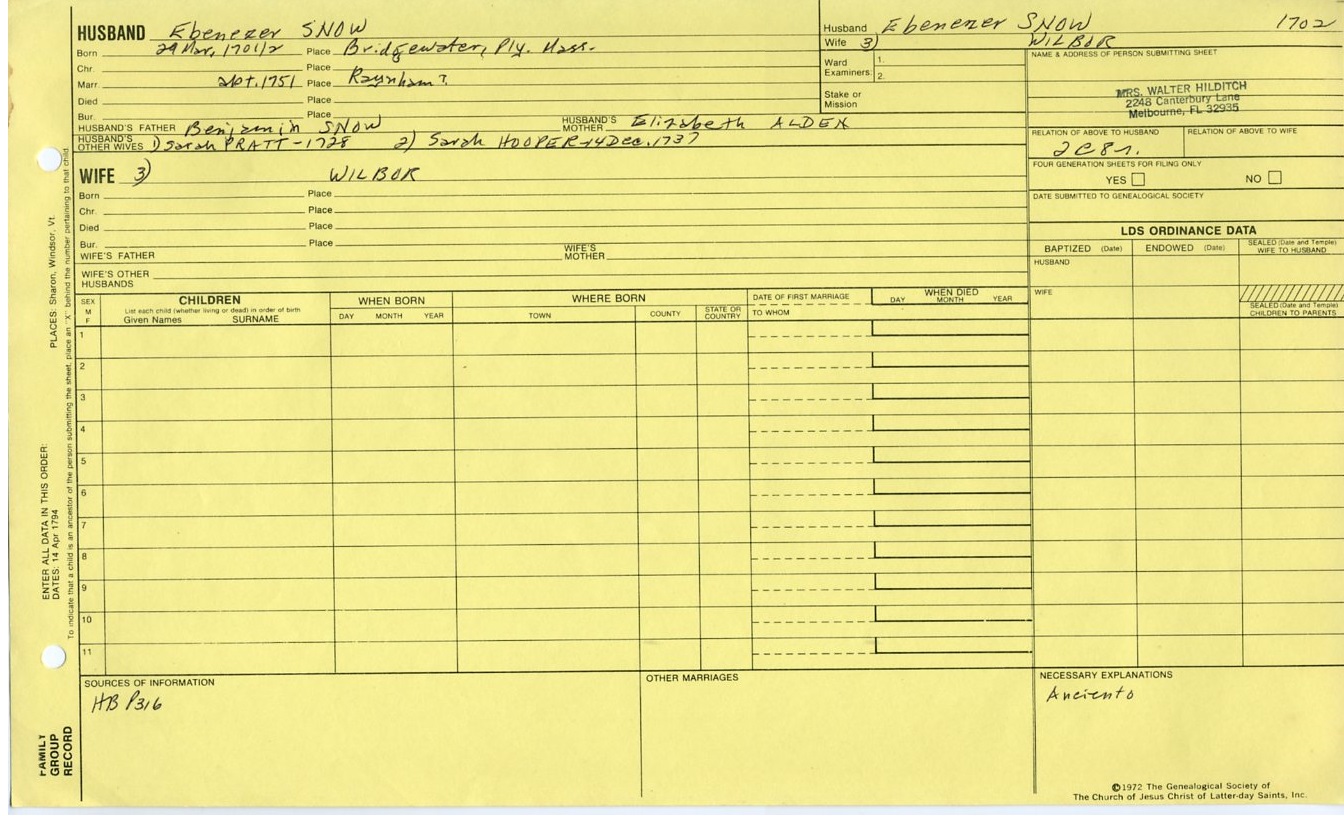 HUSBAND Ebenezer SNOW
Born 29 Mar, 1701/2 Place Bridgewater, Ply. Mass.
Chr. Place
Marr. abt. 1751 Place Raynham?
Died Place
Bur. Place
HUSBAND'S FATHER Benjamin SNOW HUSBAND'S MOTHER Elizabeth ALDEN
HUSBAND'S OTHER WIVES 1) Sarah PRATT - 1728 2) Sarah HOOPER - 14 Dec. 1737
WIFE 3) WILBOR
Born Place
Chr. Place
Died Place
Bur. Place
WIFE'S FATHER WIFE'S MOTHER
WIFE'S OTHER HUSBANDS
Husband Ebenezer SNOW 1702
Wife 3) WILBOR
Ward Examiners: 1. 2.
Stake or Mission
NAME & ADDRESS OF PERSON SUBMITTING SHEET
MRS. WALTER HILDITCH
2248 Canterbury Lane
Melbourne, FL 32935
RELATION OF ABOVE TO HUSBAND RELATION OF ABOVE TO WIFE
2C8r.
FOUR GENERATION SHEETS FOR FILING ONLY
YES NO
DATE SUBMITTED TO GENEALOGICAL SOCIETY
LDS ORDINANCE DATA
BAPTIZED (Date) ENDOWED (Date) SEALED (Date and Temple) WIFE TO HUSBAND
HUSBAND
WIFE
SEALED (Date and Temple) CHILDREN TO PARENTS
SEX M F
CHILDREN
List each child (whether living or dead) in order of birth
Given Names SURNAME
WHEN BORN
DAY MONTH YEAR
WHERE BORN
TOWN COUNTY STATE OR COUNTRY
DATE OF FIRST MARRIAGE
TO WHOM
WHEN DIED
DAY MONTH YEAR
1
2
3
4
5
6
7
8
9
10
11
SOURCES OF INFORMATION
HB P316
OTHER MARRIAGES
NECESSARY EXPLANATIONS
Anciento
©1972 The Genealogical Society of
The Church of Jesus Christ of Latter-day Saints, Inc.
FAMILY GROUP RECORD
ENTER ALL DATA IN THIS ORDER:
DATES: 14 Apr 1794
PLACES: Sharon, Windsor, Vt.
To indicate that a child is an ancestor of the person submitting the sheet, place an "X" behind the number pertaining to that child.